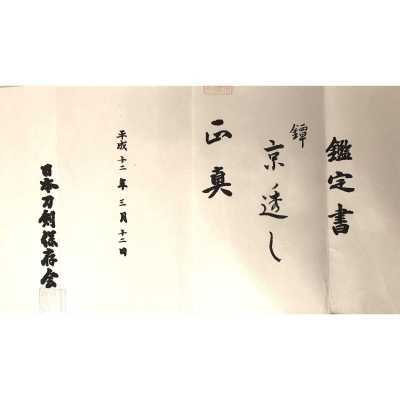 鑑定書
鐔
京透し
正真
平成十二年三月十二日
日本刀剣保存会